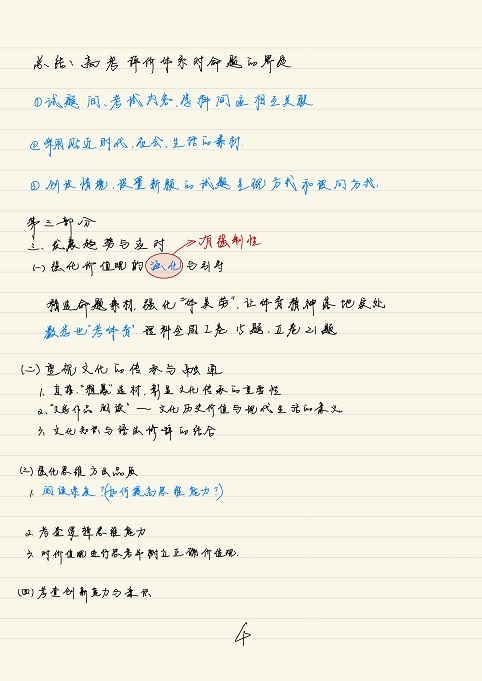 总结：高考评价体系对命题的界定
①试题间、考试内容、学科间应相互关联
②采用贴近时代、社会、生活的素材.
③创设情境，设置新颖的试题呈现方式和设问方式.
第三部分
三. 发展趋势与应对 → 有强制性
(一) 强化价值观的强化与引导
精选命题素材，强化“体美劳”，让体育精神落地
数学也“考体育” 理科全国工卷15题，卷21题
(二) 重视文化的传承与
1. 直接“ ”选材，彰显文化传承的重要性
2. “文学作品阅读” — 文化历史价值与现代生活的意义
3. 文化知识与语法修辞的结合
(三) 强化思维方式品质
1. 阅读速度？(如何提高思维能力？)
2. 考查逻辑思维能力
3. 对价值观进行思考并树立正确价值观.
(四) 考查创新能力与意识
4